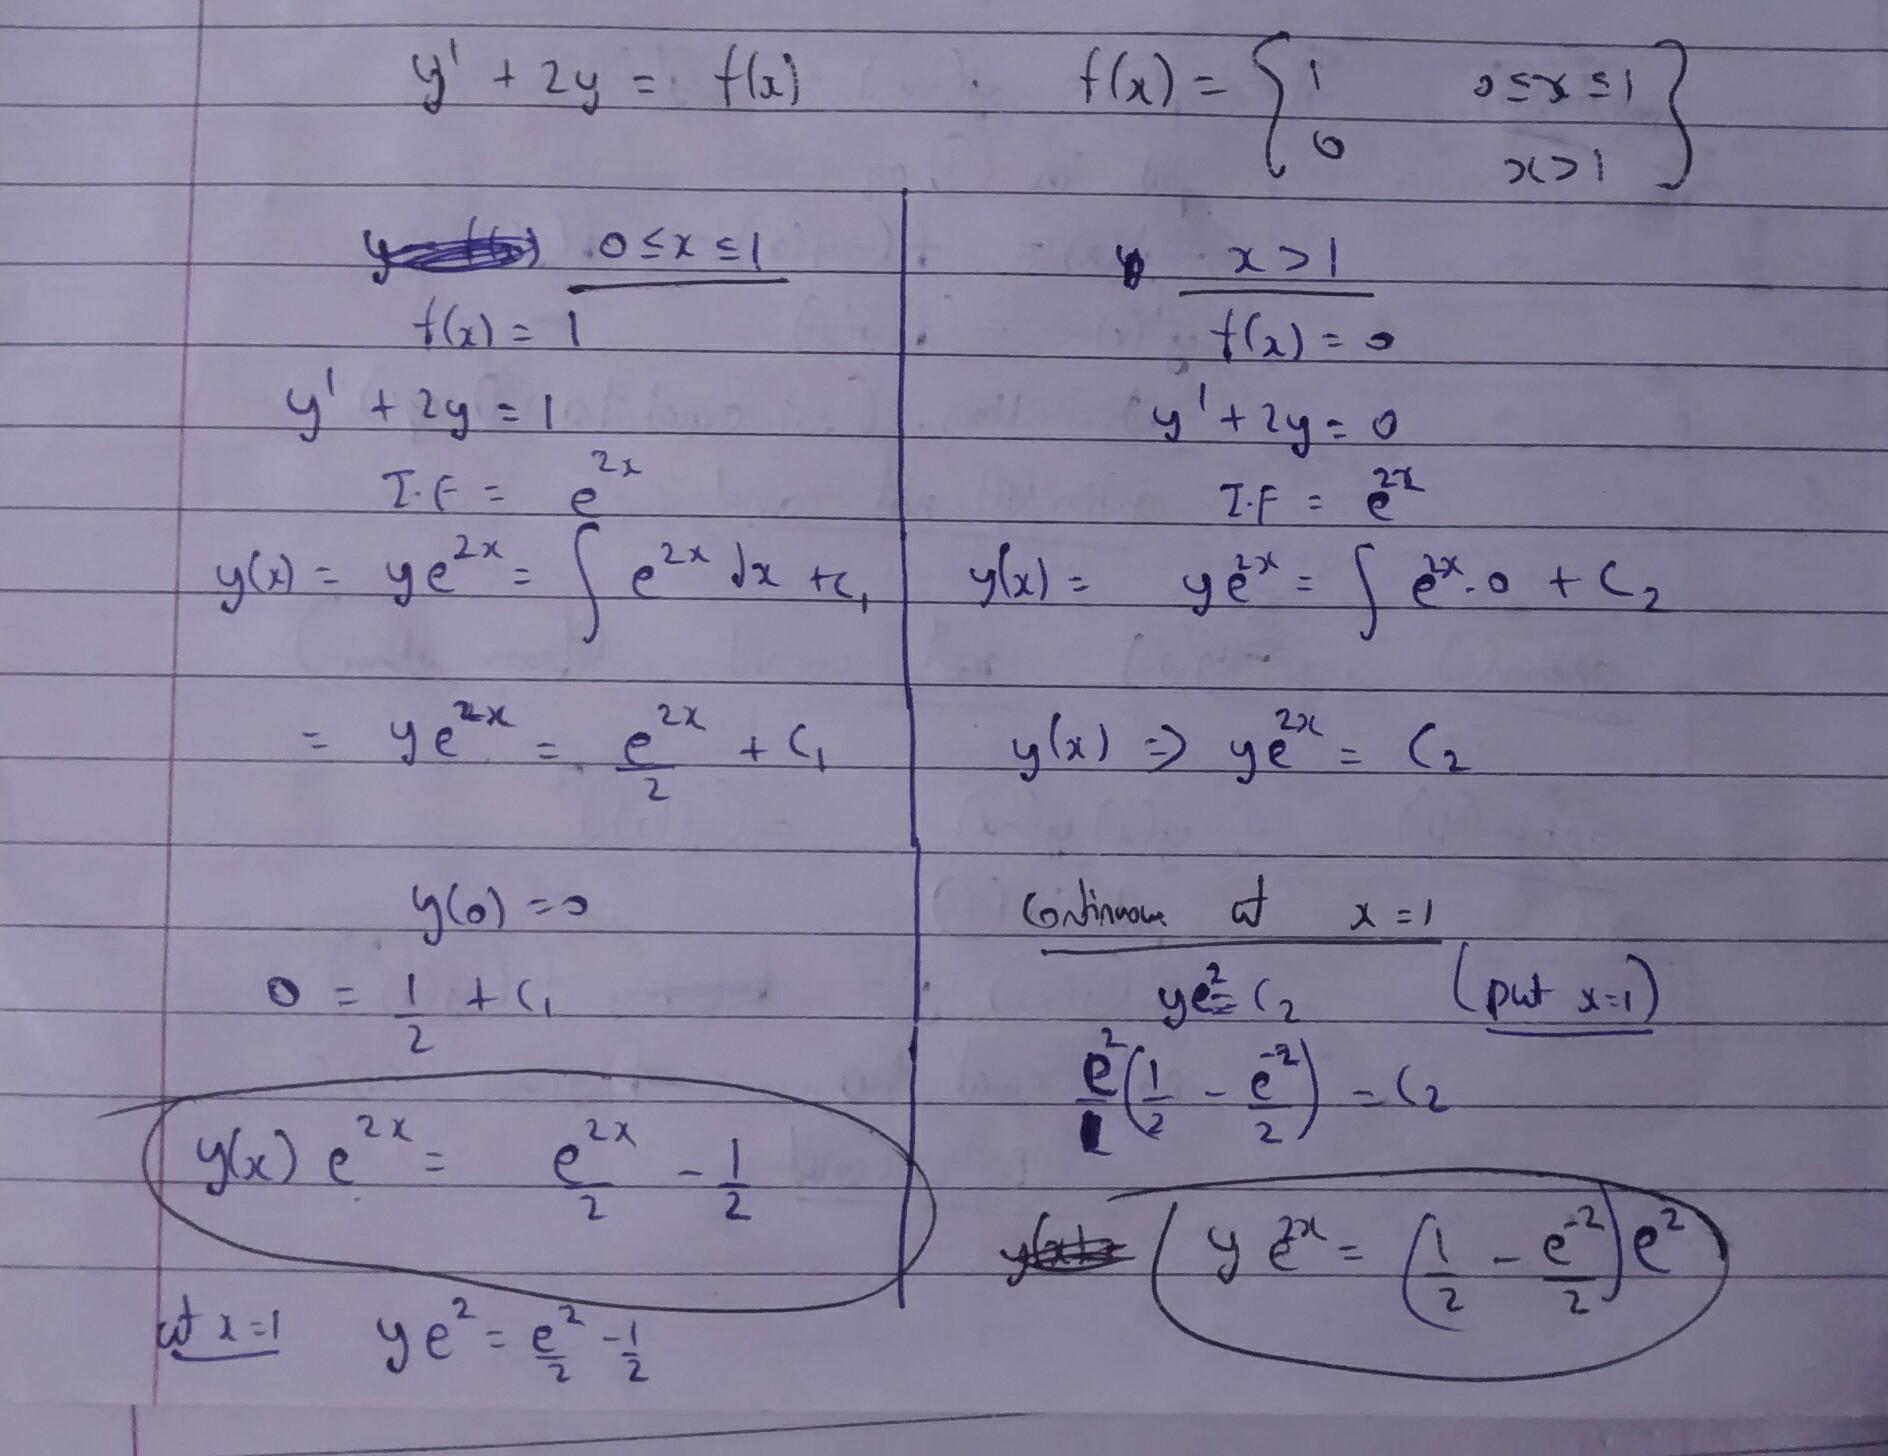 y' + 2y = f(x) f(x) = { 1 0≤x≤1
0 x>1 }
0≤x≤1
f(x) = 1
y' + 2y = 1
I.F = e^{2x}
y(x) = ye^{2x} = ∫ e^{2x} dx + C₁
= ye^{2x} = e^{2x}/2 + C₁
y(0) = 0
0 = 1/2 + C₁
y(x) e^{2x} = e^{2x}/2 - 1/2
at x=1 ye² = e²/2 - 1/2
x>1
f(x) = 0
y' + 2y = 0
I.F = e^{2x}
y(x) = ye^{2x} = ∫ e^{2x}.0 + C₂
y(x) ⇒ ye^{2x} = C₂
continuous at x=1
ye² = C₂ (put x=1)
e²(1/2 - e^{-2}/2) = C₂
y e^{2x} = (1/2 - e^{-2}/2)e²